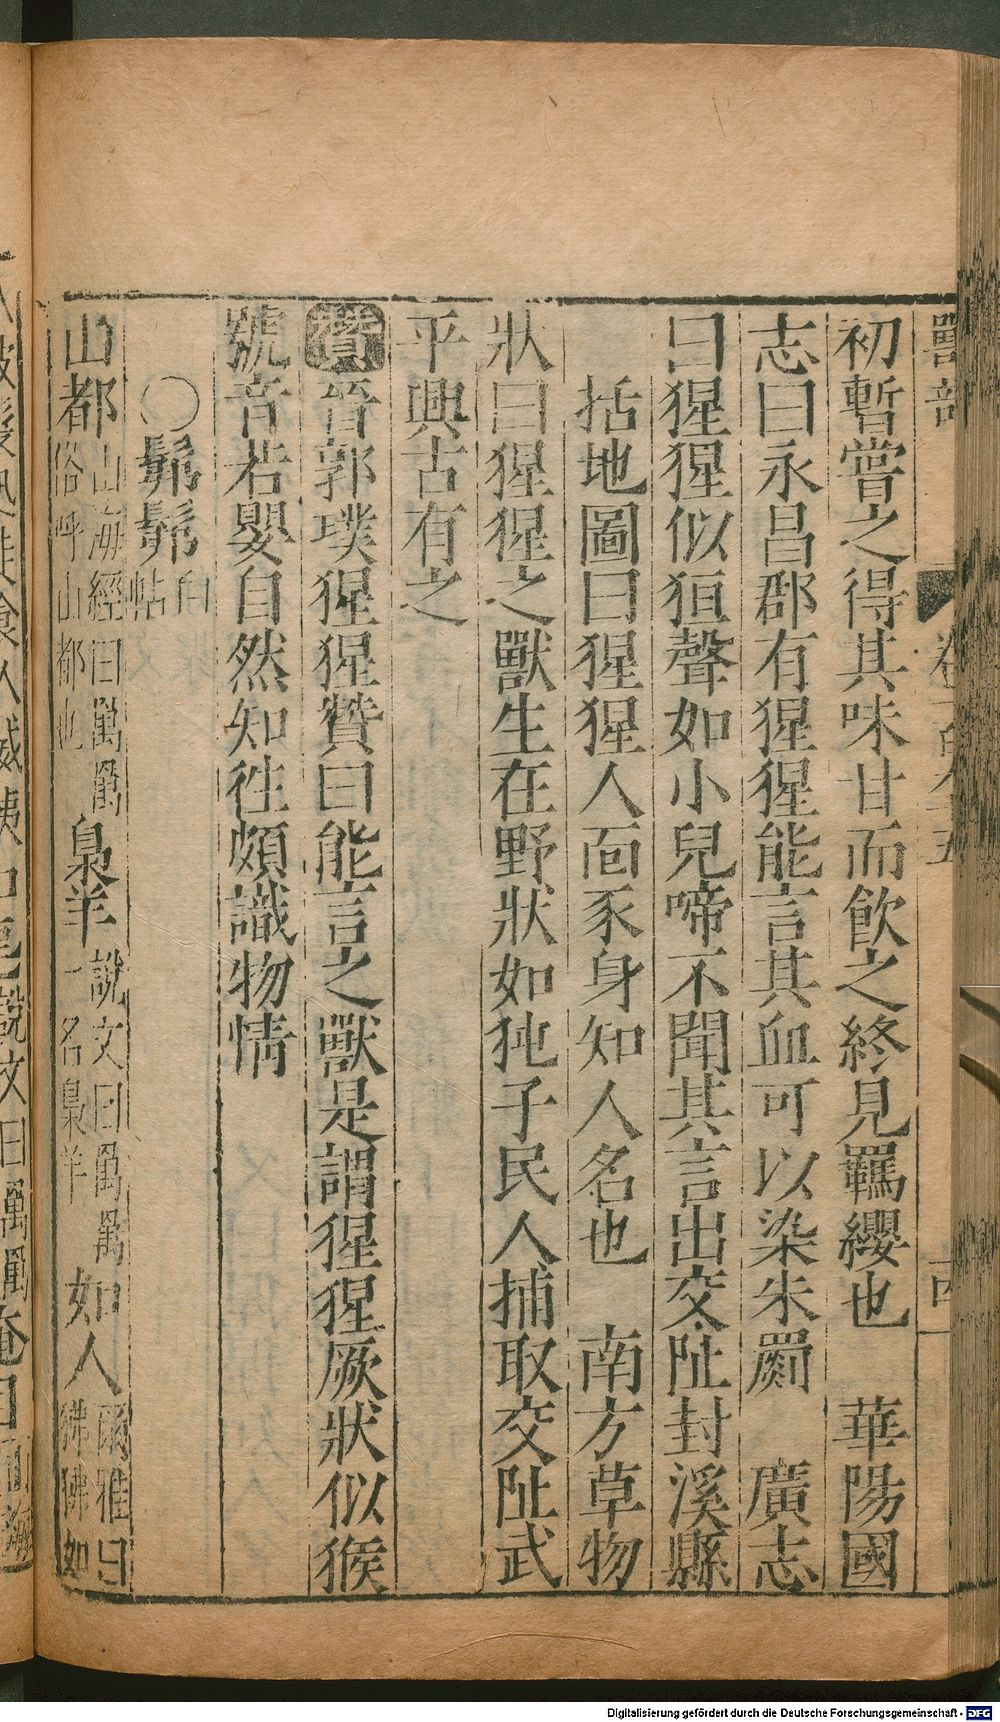 獸部 卷一百八十五 十四
初暫嘗之得其味甘而飲之終見羈纓也 華陽國
志曰永昌郡有猩猩能言其血可以染朱罽 廣志
曰猩猩似狟聲如小兒啼不聞其言出交阯封溪縣
括地圖曰猩猩人面豕身知人名也 南方草物
狀曰猩猩之獸生在野狀如㹠子民人捕取交阯武
平興古有之
贊 晉郭璞猩猩贊曰能言之獸是謂猩猩厥狀似猴
號音若嬰自然知徃頗識物情
○髴髴 白帖
山都 山海經曰𥝋𥝋俗呼山都也 梟羊 說文曰𥝋𥝋一名梟羊 如人 爾雅曰狒狒如
Digitalisierung gefördert durch die Deutsche Forschungsgemeinschaft - DFG